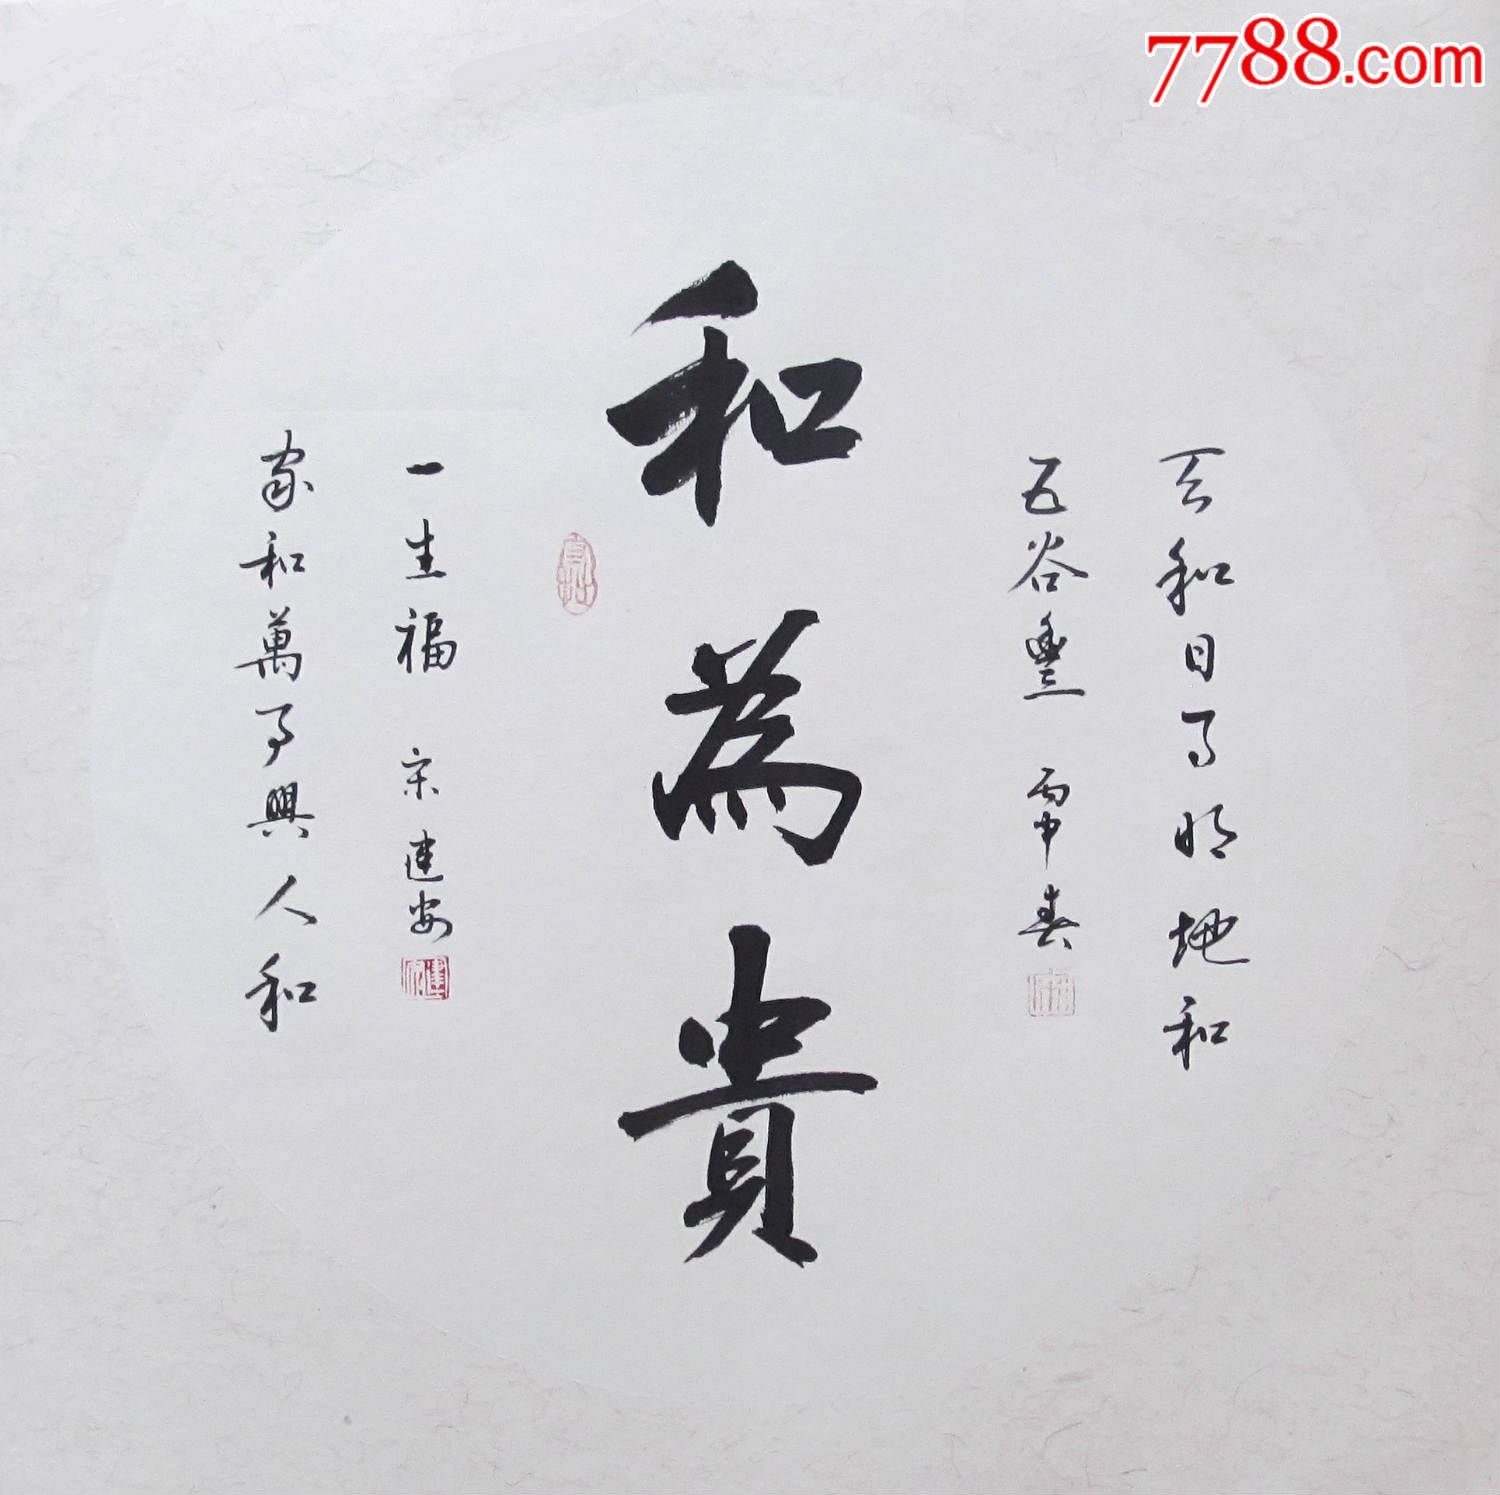 7788.com
天和日月明地和
五谷豐 丙申春
和為貴
家和萬事興人和
一生福 宋建安